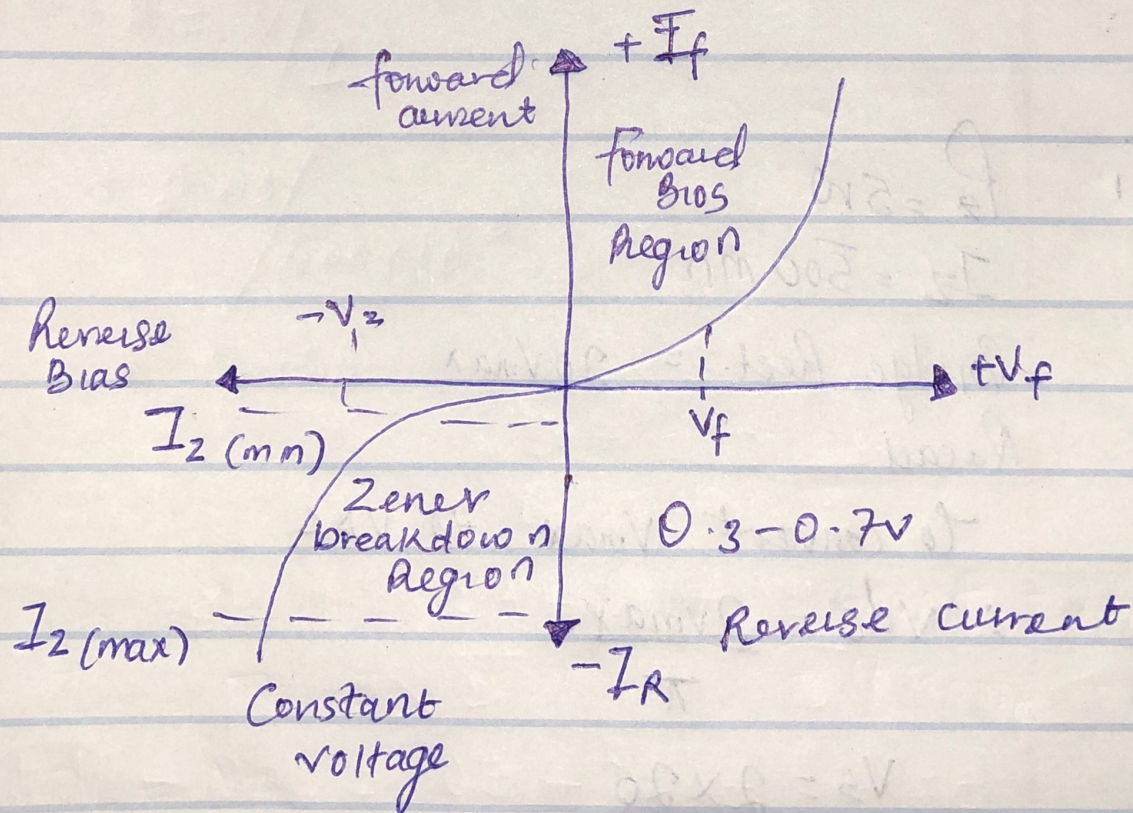 + If
forward
current
forward
Bias
Region
-Vz
Reverse
Bias
+Vf
Iz (min)
Vf
Zener
breakdown
Region
0.3-0.7v
Iz (max)
Reverse current
-IR
Constant
voltage